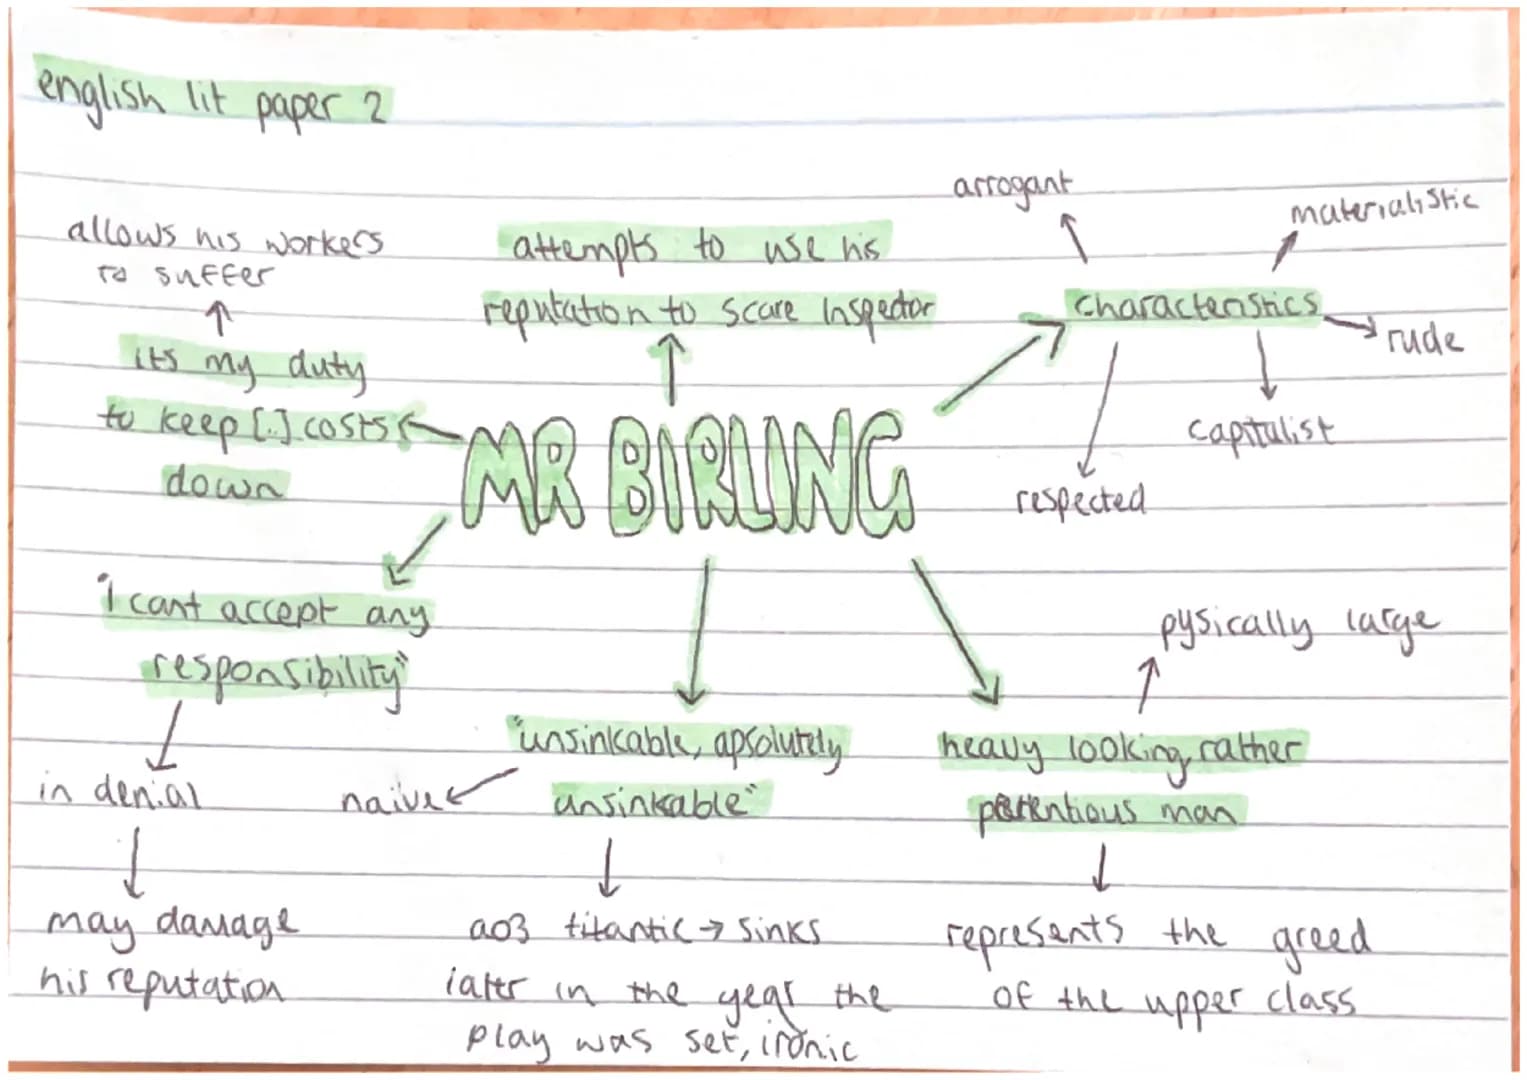 english lit paper 2
arrogant
materialistic
allows his workers
to suffer
attempts to use his
reputation to scare Inspector
characteristics
rude
its my duty
to keep [..] costs
down
capitalist
respected
MR BIRLING
"I cant accept any
responsibility"
pysically large
"unsinkable, apsolutely
unsinkable"
heavy looking, rather
portentious man
in denial
naive
may damage
his reputation
ao3 titantic → sinks
later in the year the
play was set, ironic
represents the greed
of the upper class